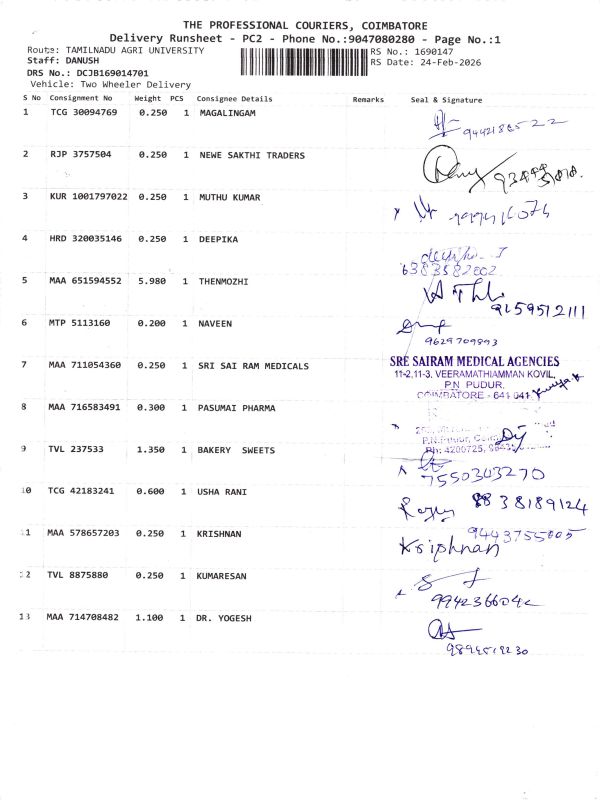 THE PROFESSIONAL COURIERS, COIMBATORE
Delivery Runsheet - PC2 - Phone No.:9047080280 - Page No.:1
Route: TAMILNADU AGRI UNIVERSITY RS No.: 1690147
Staff: DANUSH RS Date: 24-Feb-2026
DRS No.: DCJB169014701
Vehicle: Two Wheeler Delivery
S No Consignment No Weight PCS Consignee Details Remarks Seal & Signature
1 TCG 30094769 0.250 1 MAGALINGAM
2 RJP 3757504 0.250 1 NEWE SAKTHI TRADERS
3 KUR 1001797022 0.250 1 MUTHU KUMAR
4 HRD 320035146 0.250 1 DEEPIKA
6383582002
5 MAA 651594552 5.980 1 THENMOZHI
9159512111
6 MTP 5113160 0.200 1 NAVEEN
9629709893
7 MAA 711054360 0.250 1 SRI SAI RAM MEDICALS
SRE SAIRAM MEDICAL AGENCIES
11-2,11-3, VEERAMATHIAMMAN KOVIL,
P.N PUDUR,
COIMBATORE - 641 041.
8 MAA 716583491 0.300 1 PASUMAI PHARMA
P.N.Pudur,
Ph: 4200725,
9 TVL 237533 1.350 1 BAKERY SWEETS
7550303270
10 TCG 42183241 0.600 1 USHA RANI
8838189124
11 MAA 578657203 0.250 1 KRISHNAN
9443755005
Kriphnan
12 TVL 8875880 0.250 1 KUMARESAN
13 MAA 714708482 1.100 1 DR. YOGESH